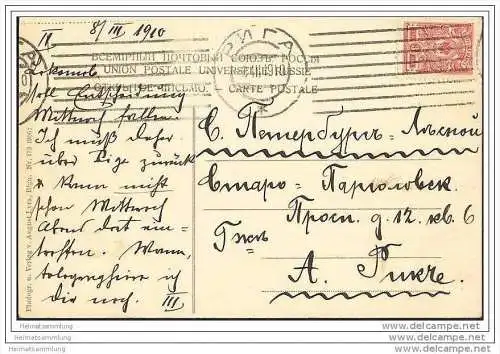 II
8/III 1910
РИГА
ВСЕМІРНЫЙ ПОЧТОВЫЙ СОЮЗЪ. РОССІЯ
UNION POSTALE UNIVERSELLE. RUSSIE
ОТКРЫТОЕ ПИСЬМО. — CARTE POSTALE
soll Entscheidung
Mittwoch fallen.
Ich muß daher
über Riga zurück
u kann nicht
schon Mittwoch
Abend dort ein-
treffen. Wann,
telegraphiere ich
Dir noch. III
С. Петербургъ - Лѣсной
Старо - Парголовск.
Просп. д. 12. кв. 6
А. Рикче.
Photogr. u. Verlag v. August Lyra, Riga. Nr.
Heimatsammlung
Heimatsammlung
www.delcampe.net